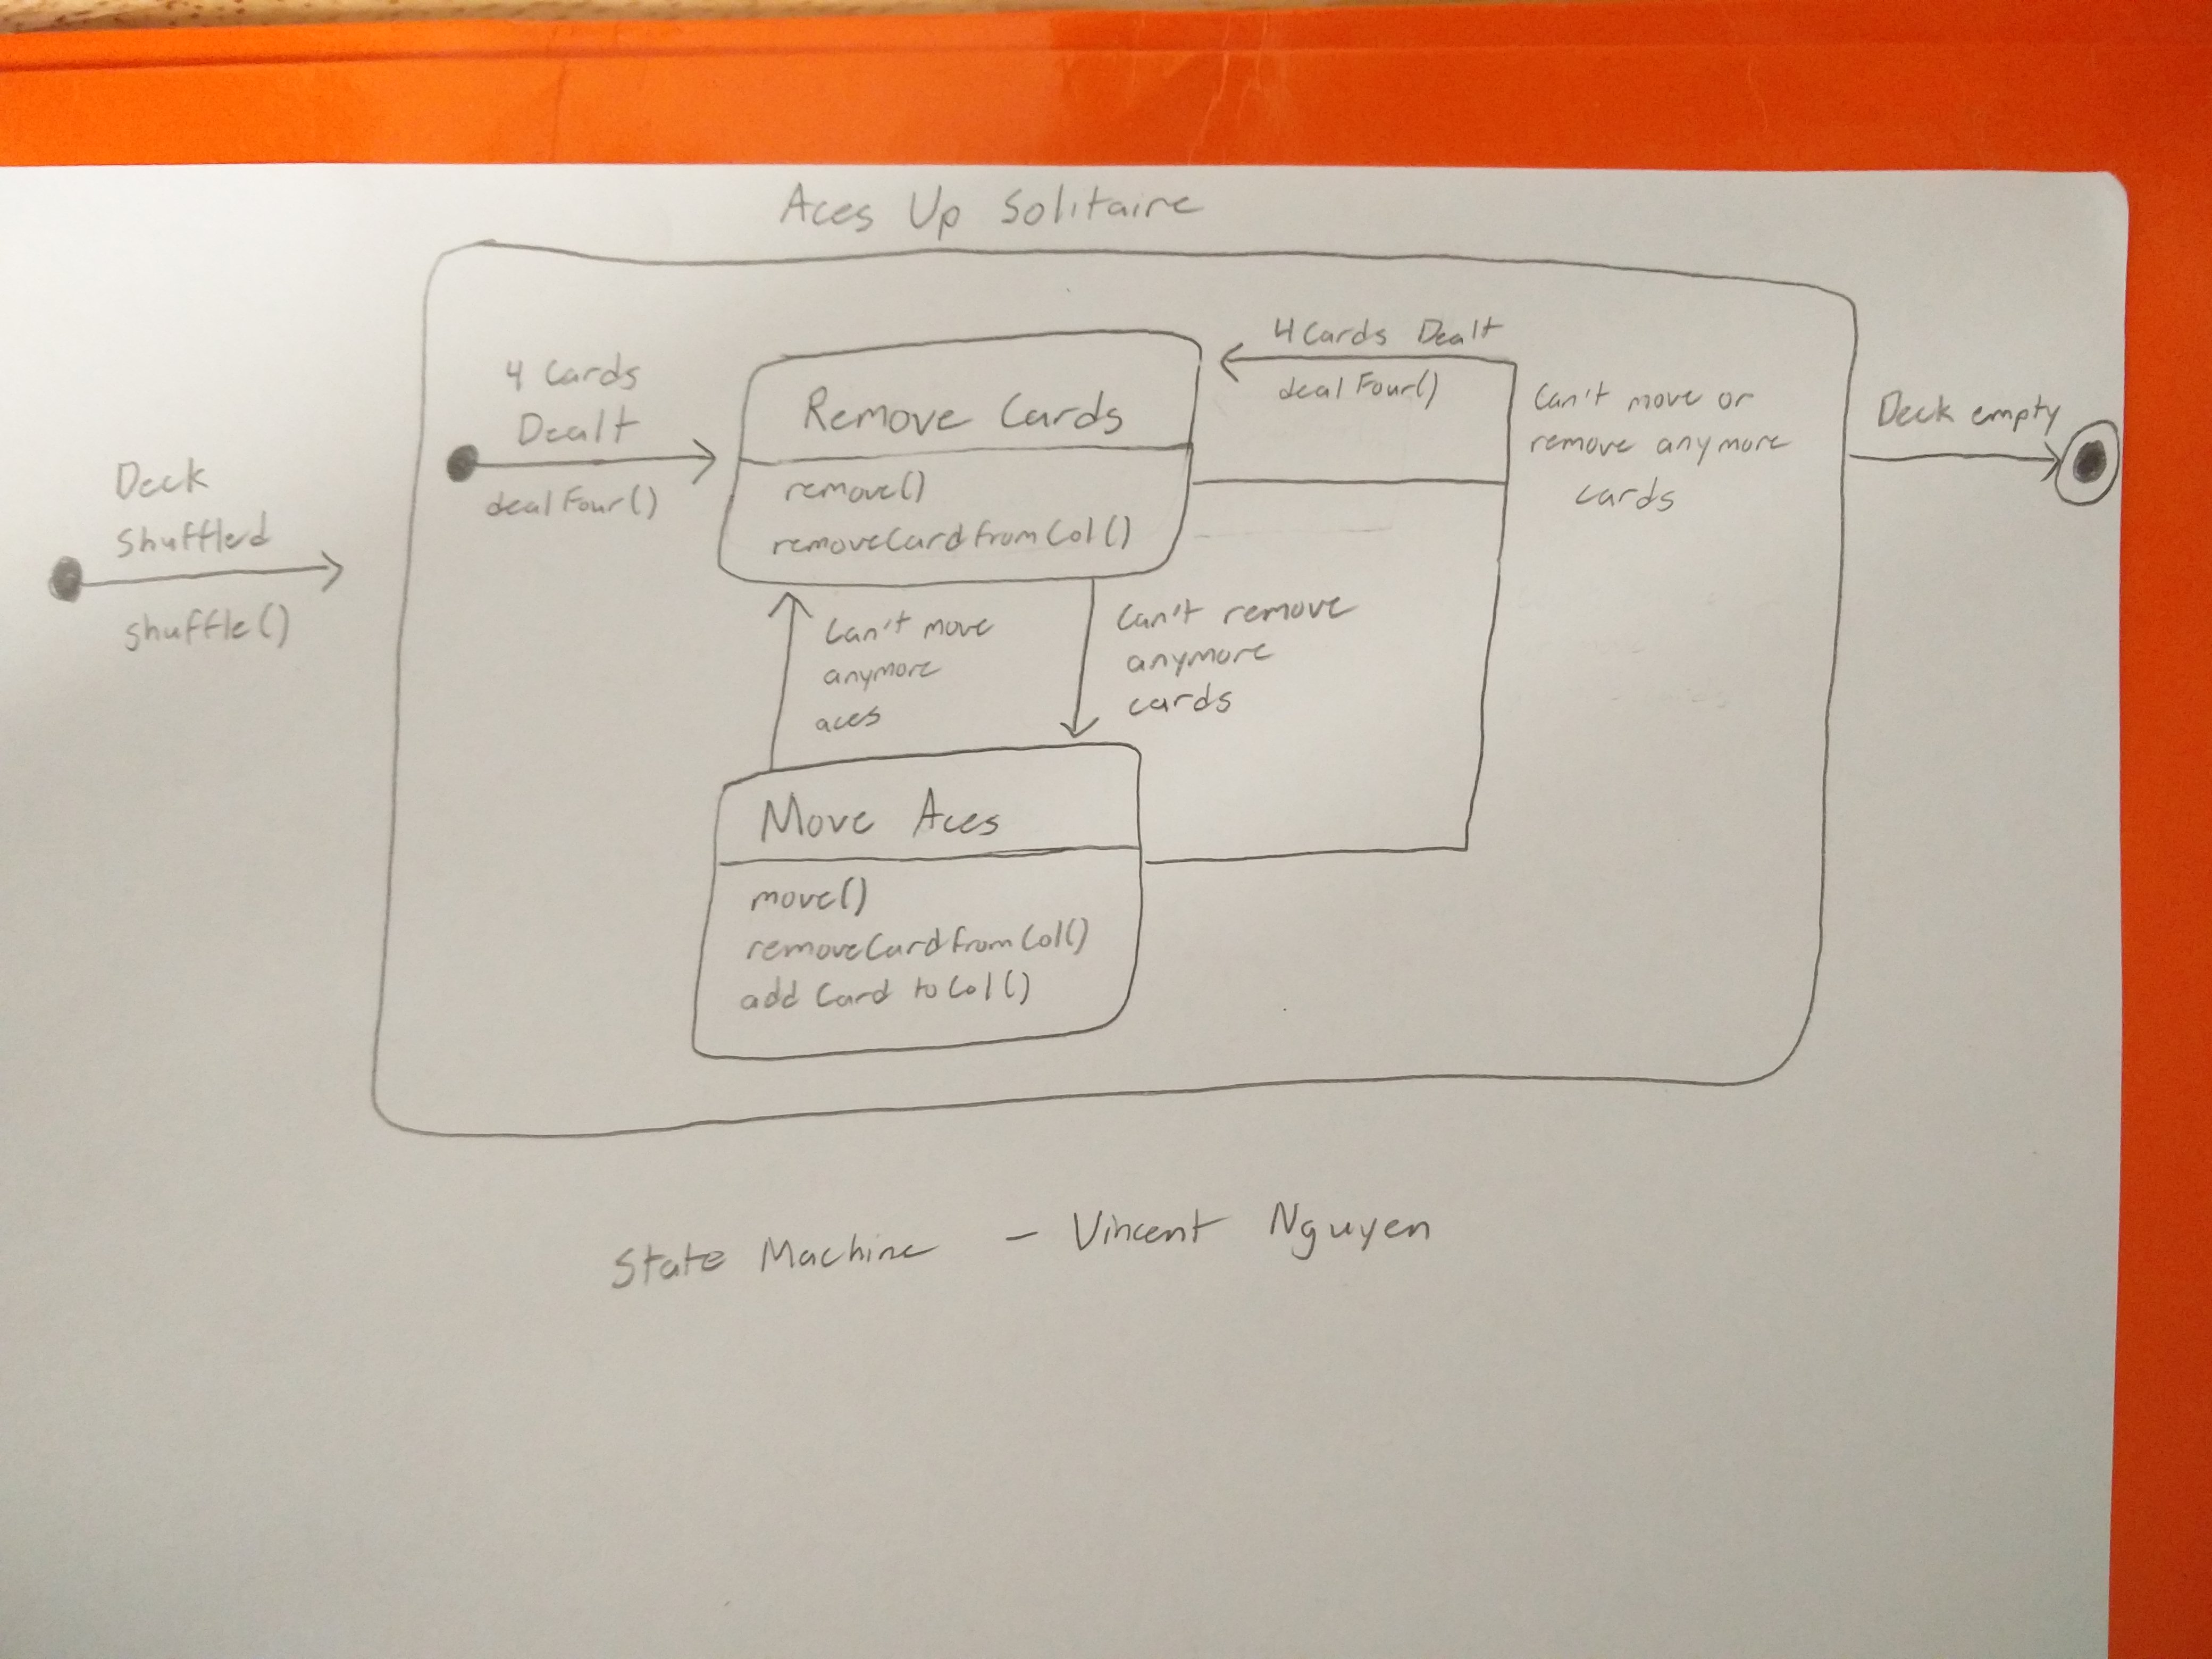 Aces Up Solitaire
Deck
Shuffled
shuffle()
4 Cards
Dealt
dealFour()
Remove Cards
remove()
removeCardFromCol()
4 Cards Dealt
dealFour()
Can't move or
remove anymore
cards
Deck empty
Can't move
anymore
aces
Can't remove
anymore
cards
Move Aces
move()
removeCardFromCol()
addCardtoCol()
State Machine - Vincent Nguyen